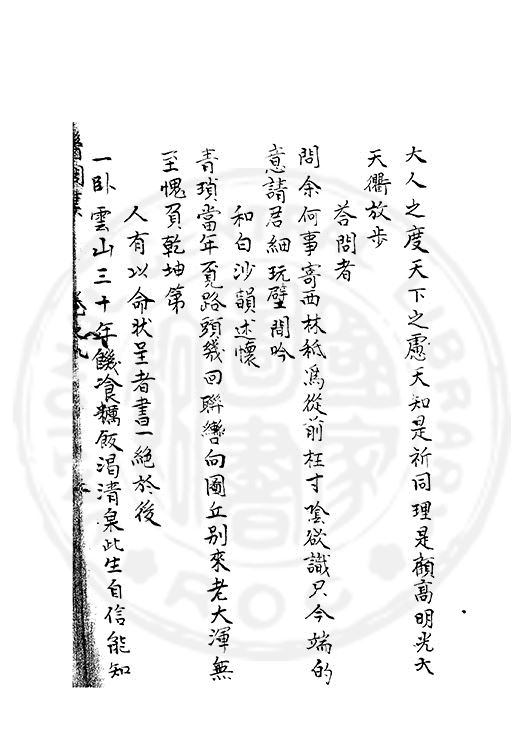 大人之度天下之慮天知是祈同理是願高明光大
天衢放步
答問者
問余何事寄西林秪為從前枉寸陰欲識只今端的
意請君細玩壁間吟
和白沙韻述懷
青瑣當年覓路頭幾回聯轡向圜丘别來老大渾無
至愧負乾坤第
人有以命狀呈者書一絶於後
一卧雲山三十年饑飡糲飯渴清泉此生自信能知